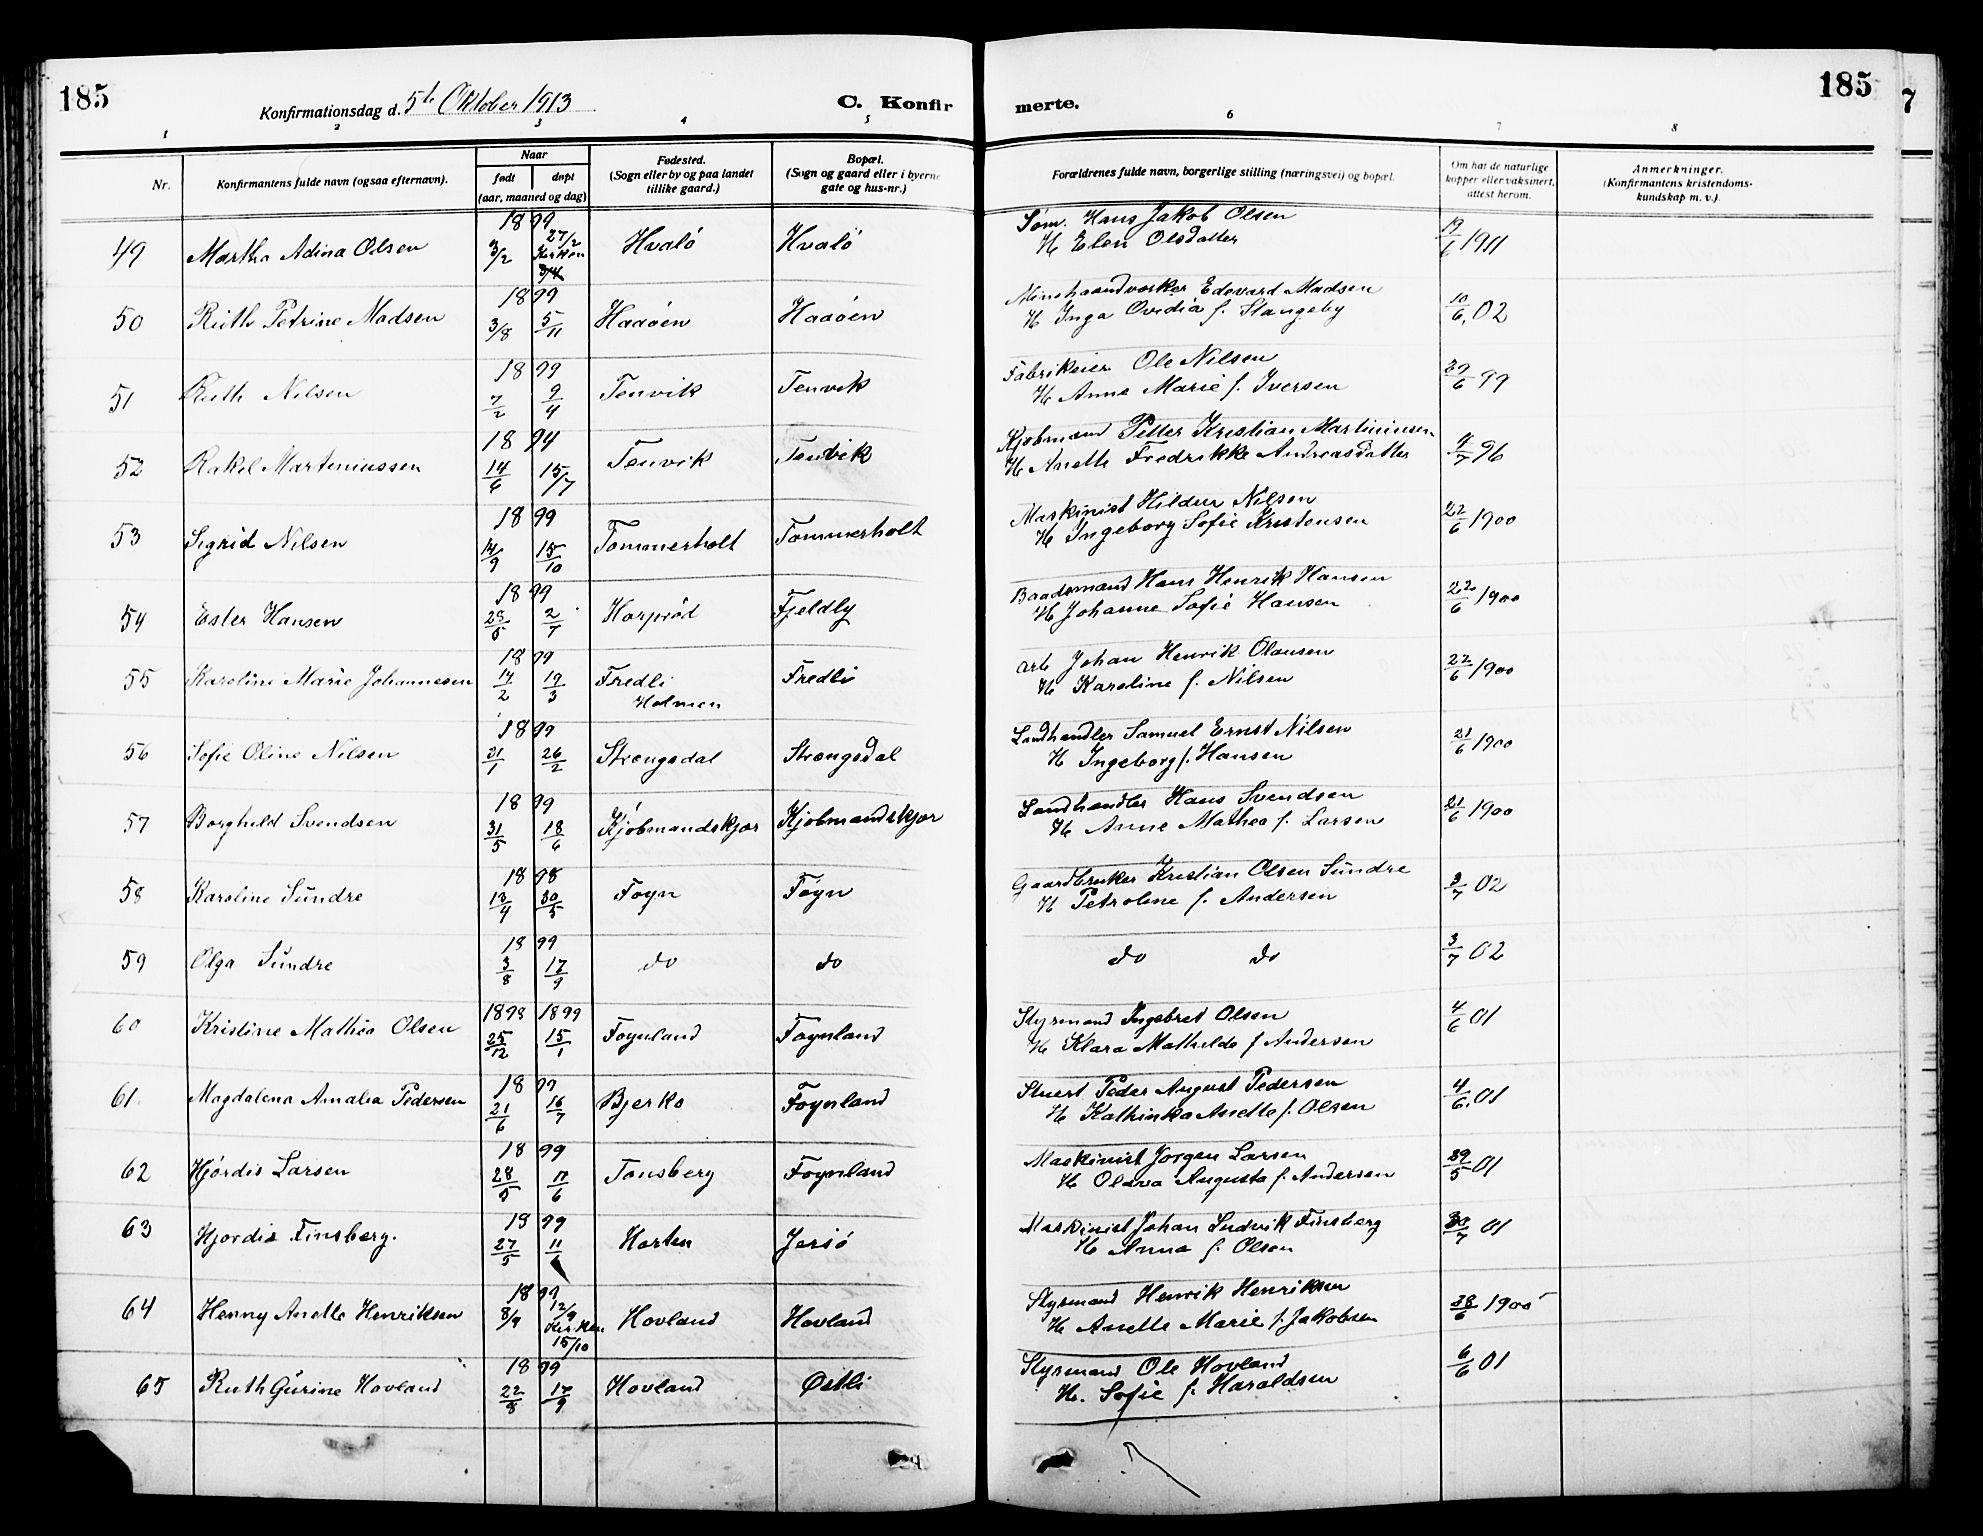 185
Konfirmationsdag d. 5te Oktober 1913
C. Konfir
merte.
185
7
1 2 3 4 5 6 7 8
Nr.
Konfirmantens fulde navn (ogsaa efternavn).
Naar
født døpt
(aar, maaned og dag)
Fødested.
(Sogn eller by og paa landet
tillike gaard.)
Bopæl.
(Sogn og gaard eller i byerne
gate og hus-nr.)
Forældrenes fulde navn, borgerlige stilling (næringsvei) og bopæl.
Om hat de naturlige
kopper eller vaksinert,
attest herom.
Anmerkninger.
(Konfirmantens kristendoms-
kundskap m. v.)
49 Martha Adina Olsen 1899 3/2 27/2 Kirken 3/4 Hvalö Hvalö Söm. Hans Jakob Olsen
H Elen Olsdatter 19/6 1911
50 Ruth Petrine Madsen 1899 3/8 5/11 Haaöen Haaöen Minehaandværker Edevard Madsen
H Inga Ovidia f. Stangeby 10/6. 02
51 Ruth Nilsen 1899 7/2 9/4 Tenvik Tenvik Fabrikeier Ole Nilsen
H Anne Marie f. Iversen 29/6 99
52 Rakel Marteniussen 1894 14/6 15/7 Tenvik Tenvik Kjöbmand Petter Kristian Martiniusen
H Anette Fredrikke Andreasdatter 9/7 96
53 Sigrid Nilsen 1899 14/9 15/10 Tommerholt Tommerholt Maskinist Hildur Nilsen
H Ingeborg Sofie Kristensen 22/6 1900
54 Ester Hansen 1899 25/5 2/7 Horpröd Fjeldly Baadsmand Hans Henrik Hansen
H Johanne Sofie Hansen 22/6 1900
55 Karoline Marie Johannesen 1899 14/2 19/3 Fredli
Holmen Fredli arb Johan Henrik Olausen
H Karoline f. Nilsen 22/6 1900
56 Sofie Oline Nilsen 1899 21/1 26/2 Strengsdal Strengsdal Landhandler Samuel Ernst Nilsen
H Ingeborg f. Hansen 21/6 1900
57 Borghild Svendsen 1899 31/5 18/6 Kjöbmandskjær Kjöbmandskjær Landhandler Hans Svendsen
H Anne Mathea f. Larsen 21/6 1900
58 Karoline Sundre 1898 13/4 30/5 Foyn Foyn Gaardbruker Kristian Olsen Sundre
H Petroline f. Andersen 3/7 02
59 Olga Sundre 1899 3/8 17/9 do do do do 3/7 02
60 Kristine Mathea Olsen 1898 1899 25/12 15/1 Foynland Foynland Styrmand Ingebret Olsen
H Klara Mathilde f Andersen 4/6 01
61 Magdalena Amalia Pedersen 1899 21/6 16/7 Bjerkö Foynland Stuert Peder August Pedersen
H Kathinka Anette f. Olsen 4/6. 01
62 Hjördis Larsen 1899 28/5 11/6 Tonsberg Foynland Maskinist Jörgen Larsen
H Olava Augusta f. Andersen 29/5 01
63 Hjordis Finsberg. 1899 27/5 11/6 Horten Jersö Maskinist Johan Ludvik Finsberg
H Anna f. Olsen 30/7 01
64 Henny Anette Henriksen 1899 8/9 12/9 Kirken 15/10 Hovland Hovland Styrmand Henrik Henriksen
H Anette Marie f. Jakobsen 28/6 1900
65 Ruth Gurine Hovland 1899 22/8 17/9 Hovland Østli Styrmand Ole Hovland
H. Sofie f. Haraldsen 6/6 01